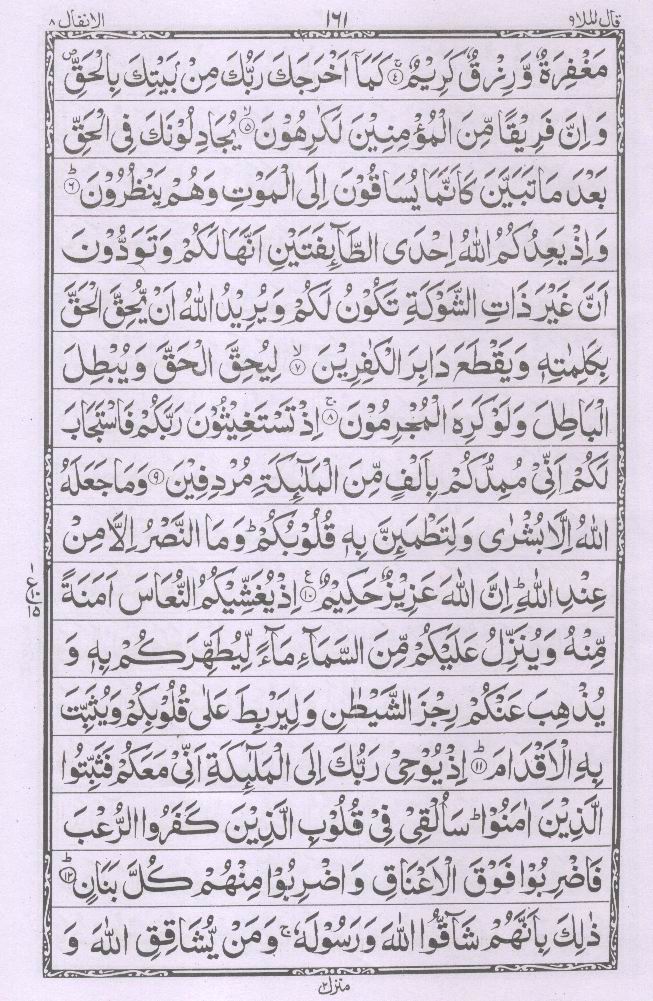 قال الملا٩ ١٦١ الانفال ٨
مَغْفِرَةٌ وَّرِزْقٌ كَرِيْمٌ ۚ‏﴿۴﴾ كَمَاۤ اَخْرَجَكَ رَبُّكَ مِنْۢ بَيْتِكَ بِالْحَقِّ ۪
وَاِنَّ فَرِيْقًا مِّنَ الْمُؤْمِنِيْنَ لَكٰرِهُوْنَ ۙ‏﴿۵﴾ يُجَادِلُوْنَكَ فِى الْحَقِّ
بَعْدَ مَا تَبَيَّنَ كَاَنَّمَا يُسَاقُوْنَ اِلَى الْمَوْتِ وَهُمْ يَنْظُرُوْنَ ؕ‏﴿۶﴾
وَاِذْ يَعِدُكُمُ اللّٰهُ اِحْدَى الطَّآٮِٕفَتَيْنِ اَنَّهَا لَكُمْ وَتَوَدُّوْنَ
اَنَّ غَيْرَ ذَاتِ الشَّوْكَةِ تَكُوْنُ لَكُمْ وَيُرِيْدُ اللّٰهُ اَنْ يُّحِقَّ الْحَقَّ
بِكَلِمٰتِهٖ وَيَقْطَعَ دَابِرَ الْكٰفِرِيْنَ ۙ‏﴿۷﴾ لِيُحِقَّ الْحَقَّ وَيُبْطِلَ
الْبَاطِلَ وَلَوْ كَرِهَ الْمُجْرِمُوْنَ ۚ‏﴿۸﴾ اِذْ تَسْتَغِيْثُوْنَ رَبَّكُمْ فَاسْتَجَابَ
لَكُمْ اَنِّىْ مُمِدُّكُمْ بِاَلْفٍ مِّنَ الْمَلٰٓٮِٕكَةِ مُرْدِفِيْنَ‏﴿۹﴾ وَمَا جَعَلَهُ
اللّٰهُ اِلَّا بُشْرٰى وَلِتَطْمَٮِٕنَّ بِهٖ قُلُوْبُكُمْ ؕ وَمَا النَّصْرُ اِلَّا مِنْ
عِنْدِ اللّٰهِ ؕ اِنَّ اللّٰهَ عَزِيْزٌ حَكِيْمٌ‏﴿۱۰﴾ اِذْ يُغَشِّيْكُمُ النُّعَاسَ اَمَنَةً
ع ١٥
مِّنْهُ وَيُنَزِّلُ عَلَيْكُمْ مِّنَ السَّمَآءِ مَآءً لِّيُطَهِّرَكُمْ بِهٖ وَ
يُذْهِبَ عَنْكُمْ رِجْزَ الشَّيْطٰنِ وَلِيَرْبِطَ عَلٰى قُلُوْبِكُمْ وَيُثَبِّتَ
بِهِ الْاَقْدَامَ ؕ‏﴿۱۱﴾ اِذْ يُوْحِىْ رَبُّكَ اِلَى الْمَلٰٓٮِٕكَةِ اَنِّىْ مَعَكُمْ فَثَبِّتُوا
الَّذِيْنَ اٰمَنُوْا ؕ سَاُلْقِىْ فِىْ قُلُوْبِ الَّذِيْنَ كَفَرُوا الرُّعْبَ
فَاضْرِبُوْا فَوْقَ الْاَعْنَاقِ وَاضْرِبُوْا مِنْهُمْ كُلَّ بَنَانٍ ؕ‏﴿۱۲﴾
ذٰلِكَ بِاَنَّهُمْ شَآقُّوا اللّٰهَ وَرَسُوْلَهٗ ۚ وَمَنْ يُّشَاقِقِ اللّٰهَ وَ
منزل ٢